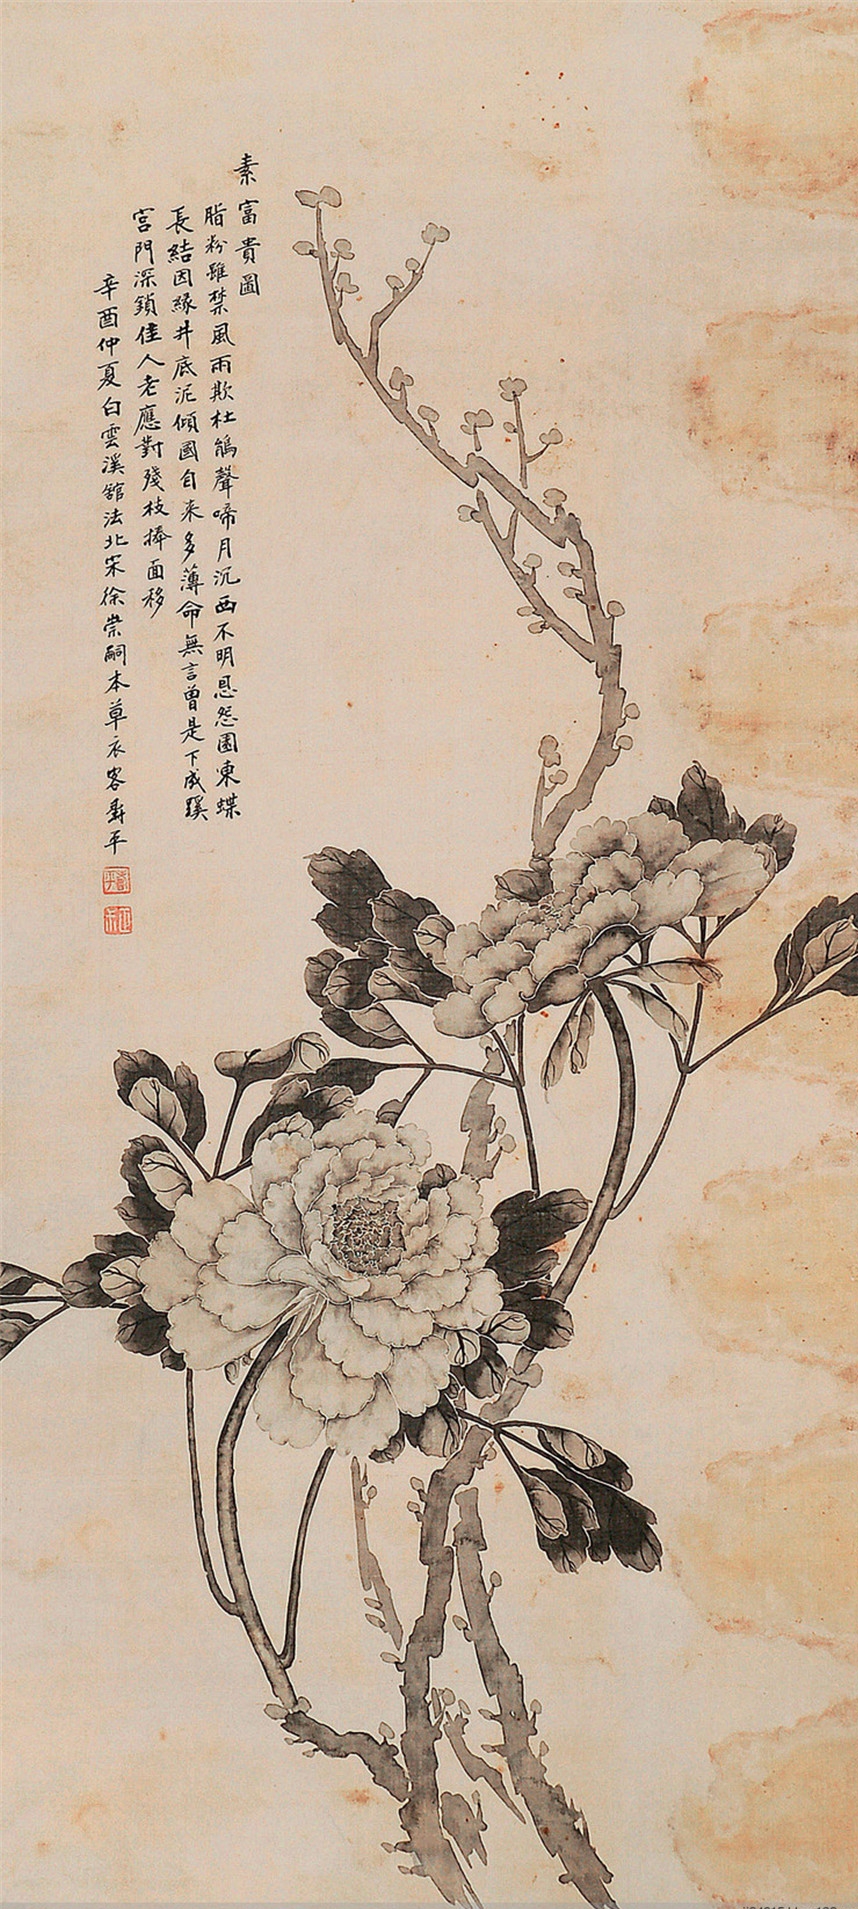 素富貴圖
脂粉雖禁風雨欺杜鵑聲啼月沉西不明恩怨園東蝶
長結因緣井底泥傾國自来多薄命無言曾是下成蹊
宮門深鎖佳人老應對殘枝捧面移
辛酉仲夏白雲溪館法北宋徐崇嗣本草衣客壽平